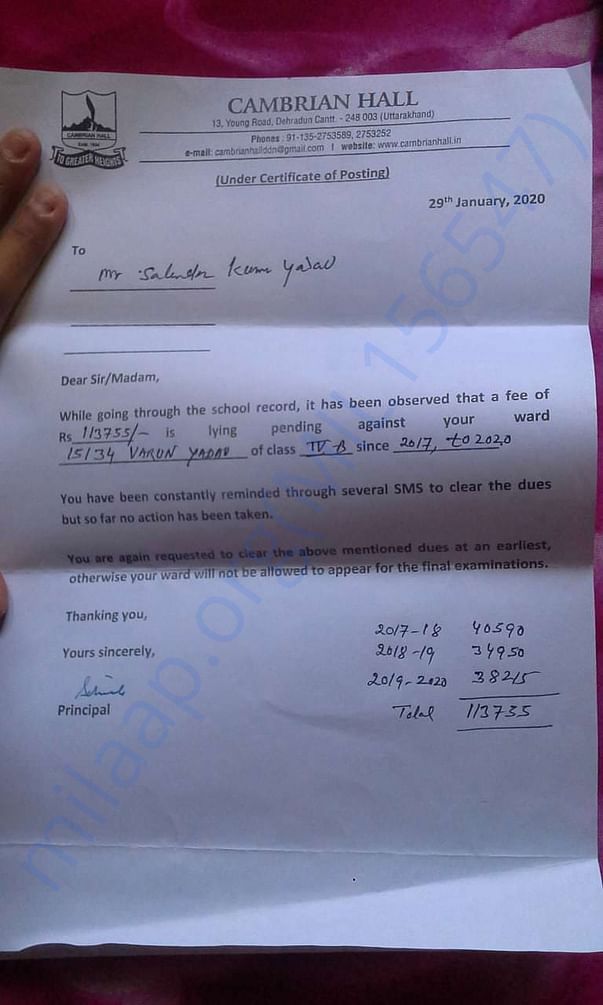 CAMBRIAN HALL
13, Young Road, Dehradun Cantt. - 248 003 (Uttarakhand)
Phones : 91-135-2753589, 2753252
e-mail: cambrianhallddn@gmail.com | website: www.cambrianhall.in
CAMBRIAN HALL
TO GREATER HEIGHTS
(Under Certificate of Posting)
29th January, 2020
To
Mr Salender Kumar Yadav
Dear Sir/Madam,
While going through the school record, it has been observed that a fee of
Rs 113755/- is lying pending against your ward
15/34 VARUN YADAV of class IV-B since 2017, to 2020
You have been constantly reminded through several SMS to clear the dues
but so far no action has been taken.
You are again requested to clear the above mentioned dues at an earliest,
otherwise your ward will not be allowed to appear for the final examinations.
Thanking you,
Yours sincerely,
Principal
2017-18 40590
2018-19 34950
2019-2020 38215
Total 113755
milaap.org(MIL1565647)